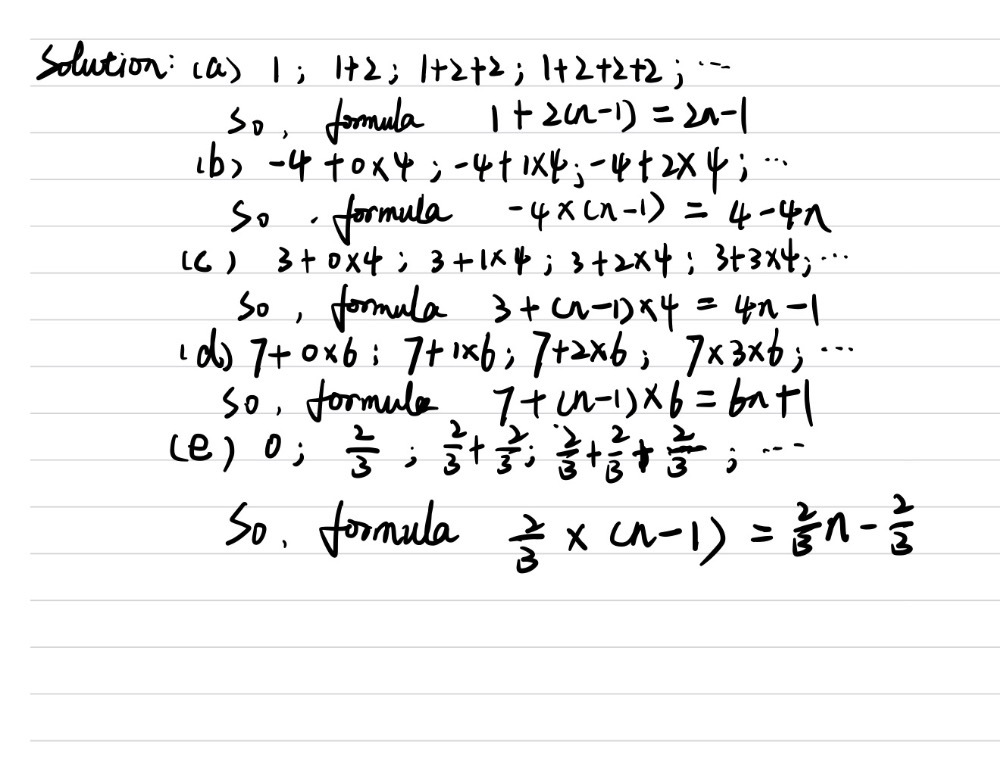 Solution: (a) 1; 1+2; 1+2+2; 1+2+2+2; ...
So, formula 1+2(n-1)=2n-1
(b) -4+0×4; -4+1×4; -4+2×4; ...
So, formula -4×(n-1)=4-4n
(c) 3+0×4; 3+1×4; 3+2×4; 3+3×4; ...
So, formula 3+(n-1)×4=4n-1
(d) 7+0×6; 7+1×6; 7+2×6; 7×3×6; ...
So, formula 7+(n-1)×6=6n+1
(e) 0; 2/3; 2/3+2/3; 2/3+2/3+2/3; ...
So, formula 2/3×(n-1)=2/3n-2/3